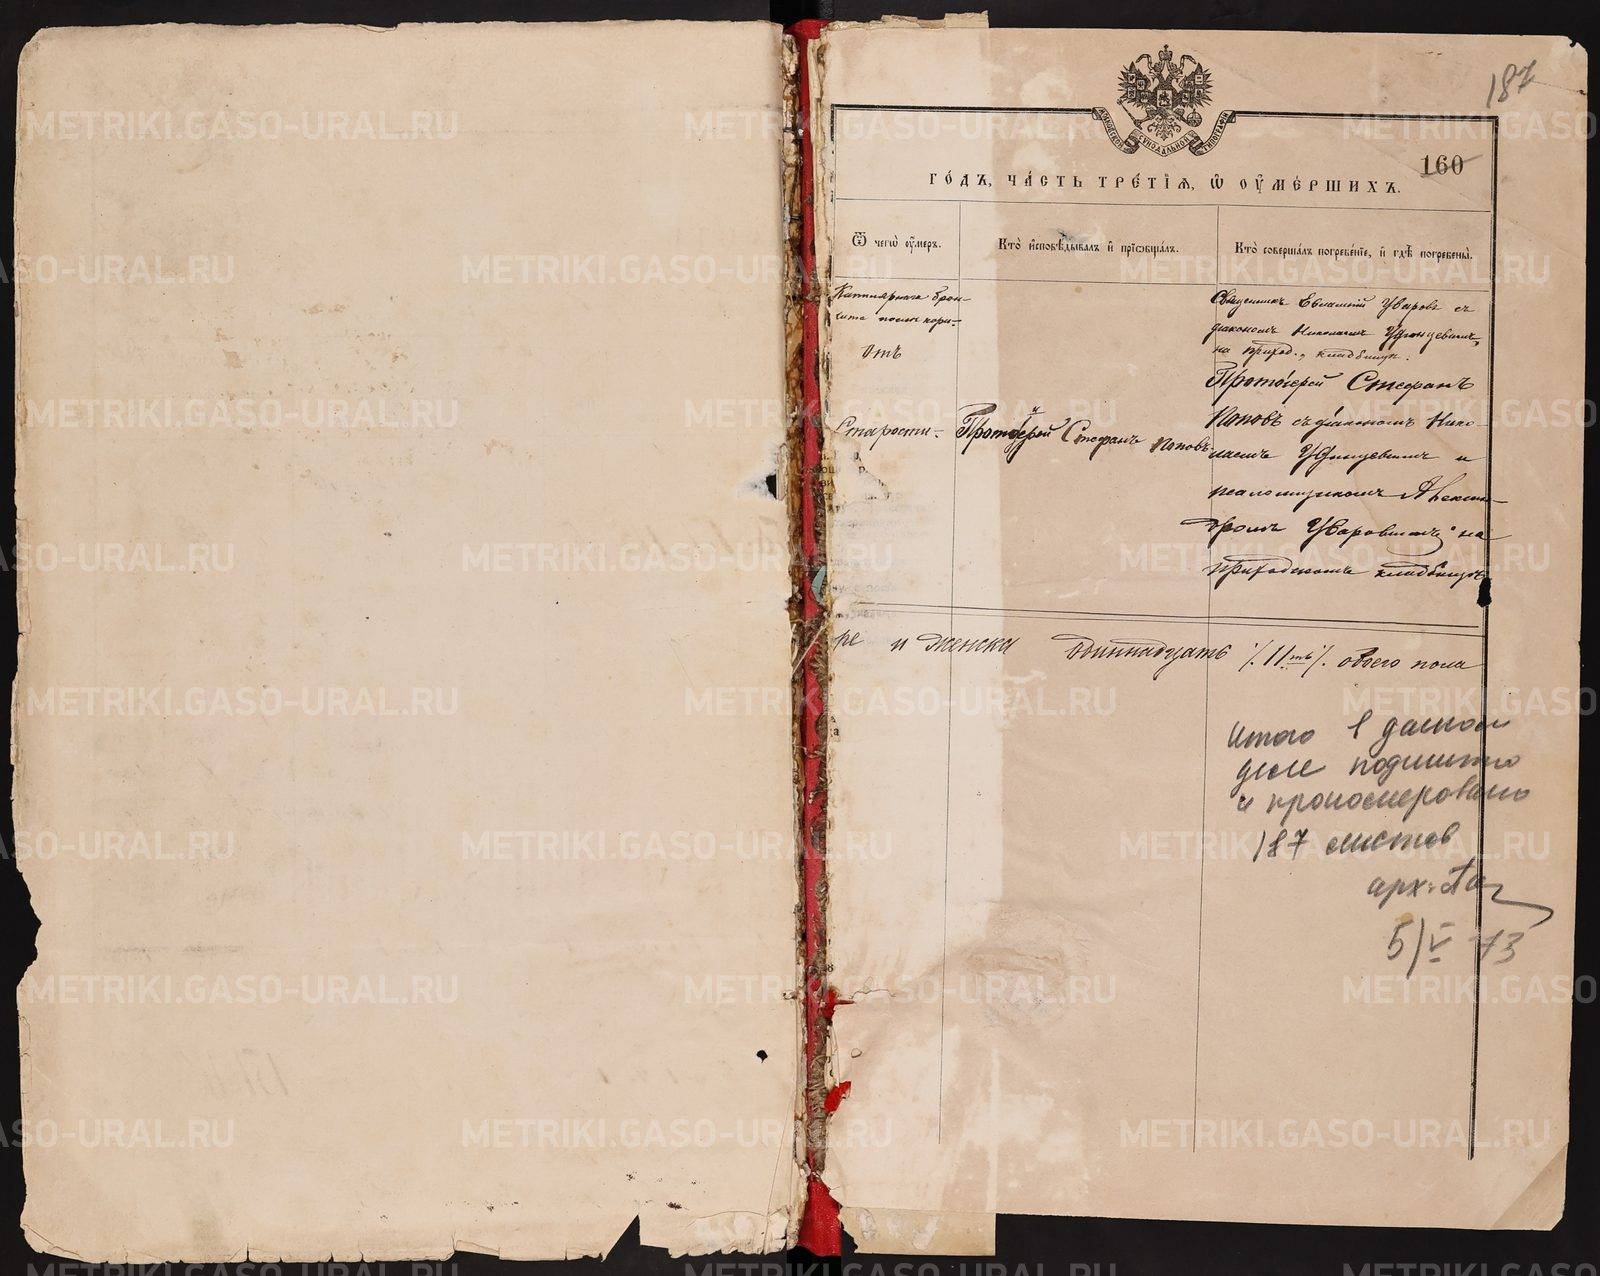 187
МОСКОВСКОЙ СѴНОДАЛЬНОЙ ТИПОГРАФІИ
160
ГО́ДЪ, ЧА́СТЬ ТРЕ́ТІѦ, Ѿ ОУ҆МЕ́РШИХЪ.
Ѿ чегѡ̀ оу҆́меръ.
Кто̀ и҆сповѣ́дывалъ и҆ прїѡбща́лъ.
Кто̀ соверша́лъ погребе́нїе, и҆ гдѣ̀ погребены̀.
Катарра брон-
хита после кори.
Священникъ Евлампій Уваровъ съ
діакономъ Николаемъ Удинцевымъ,
на приход. кладбищѣ.
Отъ
Старости.
Протоіерей Стефанъ Поповъ
Протоіерей Стефанъ
Поповъ съ діакономъ Нико-
лаемъ Удинцевымъ и
псаломщикомъ Алексан-
дромъ Уваровымъ на
приходскомъ кладбищѣ
ре и женска одиннадцать /.11ть/. обоего пола
Итого в данном
деле подшито
и пронумеровано
187 листов
арх.
5/V 73
METRIKI.GASO-URAL.RU